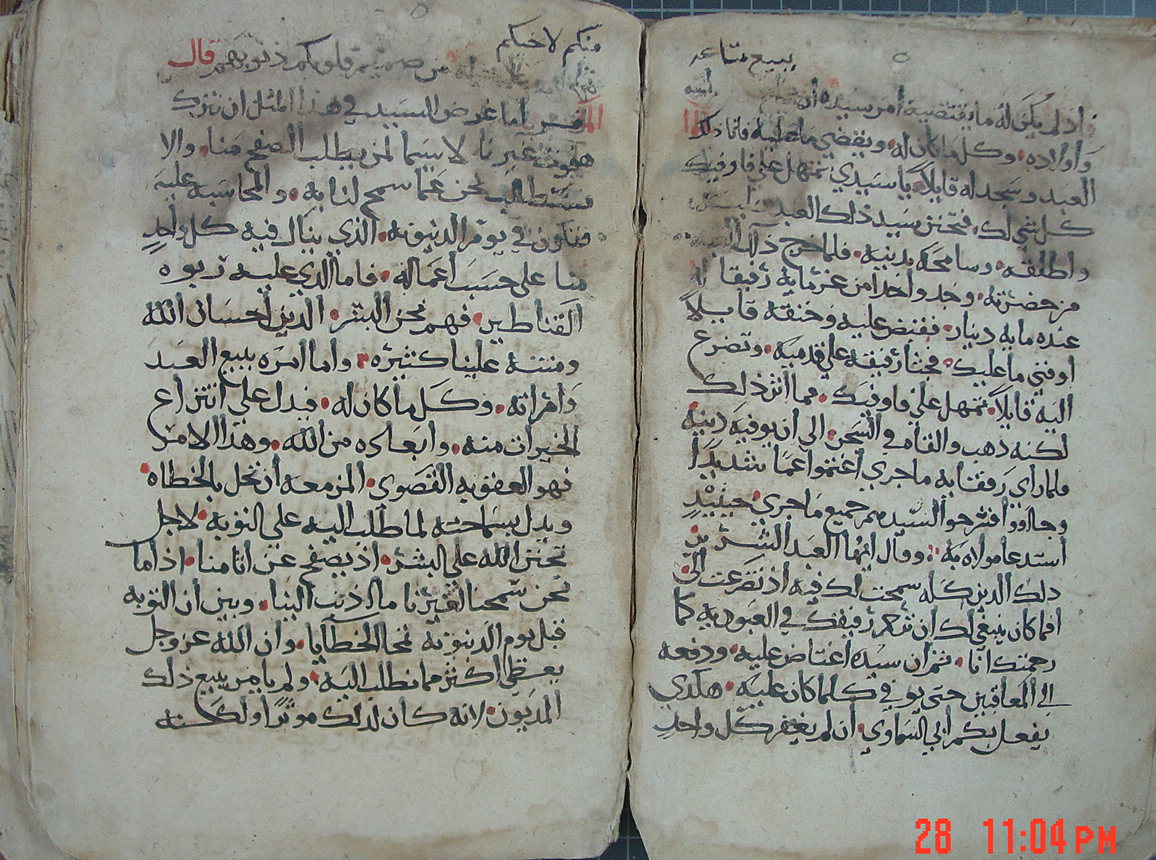 ببيع متاعه
فاذ لم يكن له ما يقتضيه أمر سيده أن
وأولاده. وكل ما كان له. ويقضي ما عليه فاتا ذلك
العبد وسجد له قايلاً. يا سيدي تمهل علي فاوفيك
كل شي لك. فتحنن سيد ذلك العبد
واطلقه. وسامحه بدينه. فلما خرج ذلك العبد
من حضرته. وجد واحداً من غرمايه رفيقا له
عنده مايه دينار. فقبض عليه وخنقه قايلاً
اوفني ما عليك. فجثا رفيقه علي قدميه. وتضرع
اليه قايلاً. تمهل علي فاوفيك. فما اثر ذلك
لكنه ذهب والقاه في السجن. الي ان يوفيه دينه
فلما راي رفقايه ماجري اغتموا غماً شديداً
وجاوو افشرحو السيدهم جميع ماجري. حينيذٍ
استدعا مولاه به. وقال ايها العبد الشرير
ذلك الدين كله سمحت لك فيه اذ تضرعت الي
افما كان ينبغي لك ان ترحم رفيقك في العبوديه كما
رحمتك انا. ثم ان سيده اغتاض عليه. ودفعه
الي المعاقبين حتي يوفي كلما كان عليه. هكذي
يفعل بكم ابي السماوي. ان لم يغفر كل واحدٍ
منكم لاخيكم
من صميم قلوبكم ذنوبهم قال
المفسر أما غرض السيد في هذا المثل ان نترك
هفوت غيرنا لاسيما لمن يطلب الصفح منا. والا
فسنطالب نحن عما سمح لنا به. والمحاسبه عليه
فتكون في يوم الدينونه. الذي ينال فيه كل واحدٍ
منا علي حسب أعماله. فاما الذي عليه ربوه
القناطير. فهم نحن البشر. الذين احسانات الله
ومننه علينا كثيره. وأما أمره ببيع العبد
وامراته. وكل ما كان له. فيدل علي انتزاع
الخيرات منه. وابعاده من الله. وهذا الامر
فهو العقوبه القصوي. المزمعه ان تحل بالخطاه
ويدل بسماحته لما طلب اليه علي التوبه لاجل
تحنن الله علي البشر. اذ يصفح عن اثامنا. اذا ما
نحن سمحنا لغيرنا ما اذنب الينا. وبين أن التوبه
قبل يوم الدينونه تمحا الخطايا. وان الله عز وجل
يعطي اكثر مما نطلب اليه. ولم يامر ببيع ذلك
المديون. لانه كان لذلك موثراً ولكنه